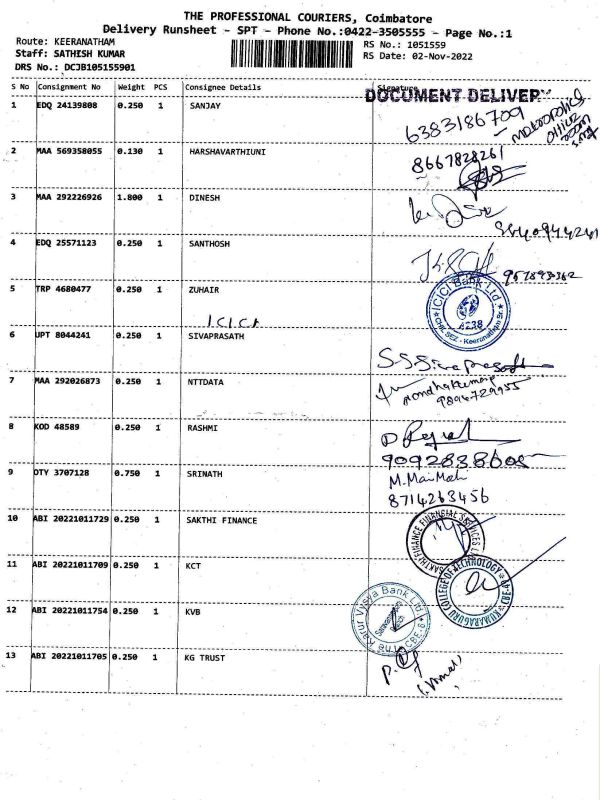 THE PROFESSIONAL COURIERS, Coimbatore
Delivery Runsheet - SPT - Phone No.:0422-3505555 - Page No.:1
Route: KEERANATHAM
RS No.: 1051559
Staff: SATHISH KUMAR
RS Date: 02-Nov-2022
DRS No.: DCJB105155901
S No Consignment No Weight PCS Consignee Details Signature
DOCUMENT DELIVERY
1 EDQ 24139808 0.250 1 SANJAY
6383186709
office
2 MAA 569358055 0.130 1 HARSHAVARTHIUNI
8667828261
3 MAA 292226926 1.800 1 DINESH
4 EDQ 25571123 0.250 1 SANTHOSH
5 TRP 4680477 0.250 1 ZUHAIR
ICICI Bank Ltd.
CHIL SEZ - Keeranatham Br.
6238
I C I C I
6 UPT 8044241 0.250 1 SIVAPRASATH
S.S.Sivaprasath
7 MAA 292026873 0.250 1 NTTDATA
Nandhakumar
9894729955
8 KOD 48589 0.250 1 RASHMI
9092838605
9 DTY 3707128 0.750 1 SRINATH
8714263456
10 ABI 20221011729 0.250 1 SAKTHI FINANCE
SAKTHI FINANCE FINANCIAL SERVICES
11 ABI 20221011709 0.250 1 KCT
KUMARAGURU COLLEGE OF TECHNOLOGY
12 ABI 20221011754 0.250 1 KVB
The Karur Vysya Bank Ltd.
13 ABI 20221011705 0.250 1 KG TRUST